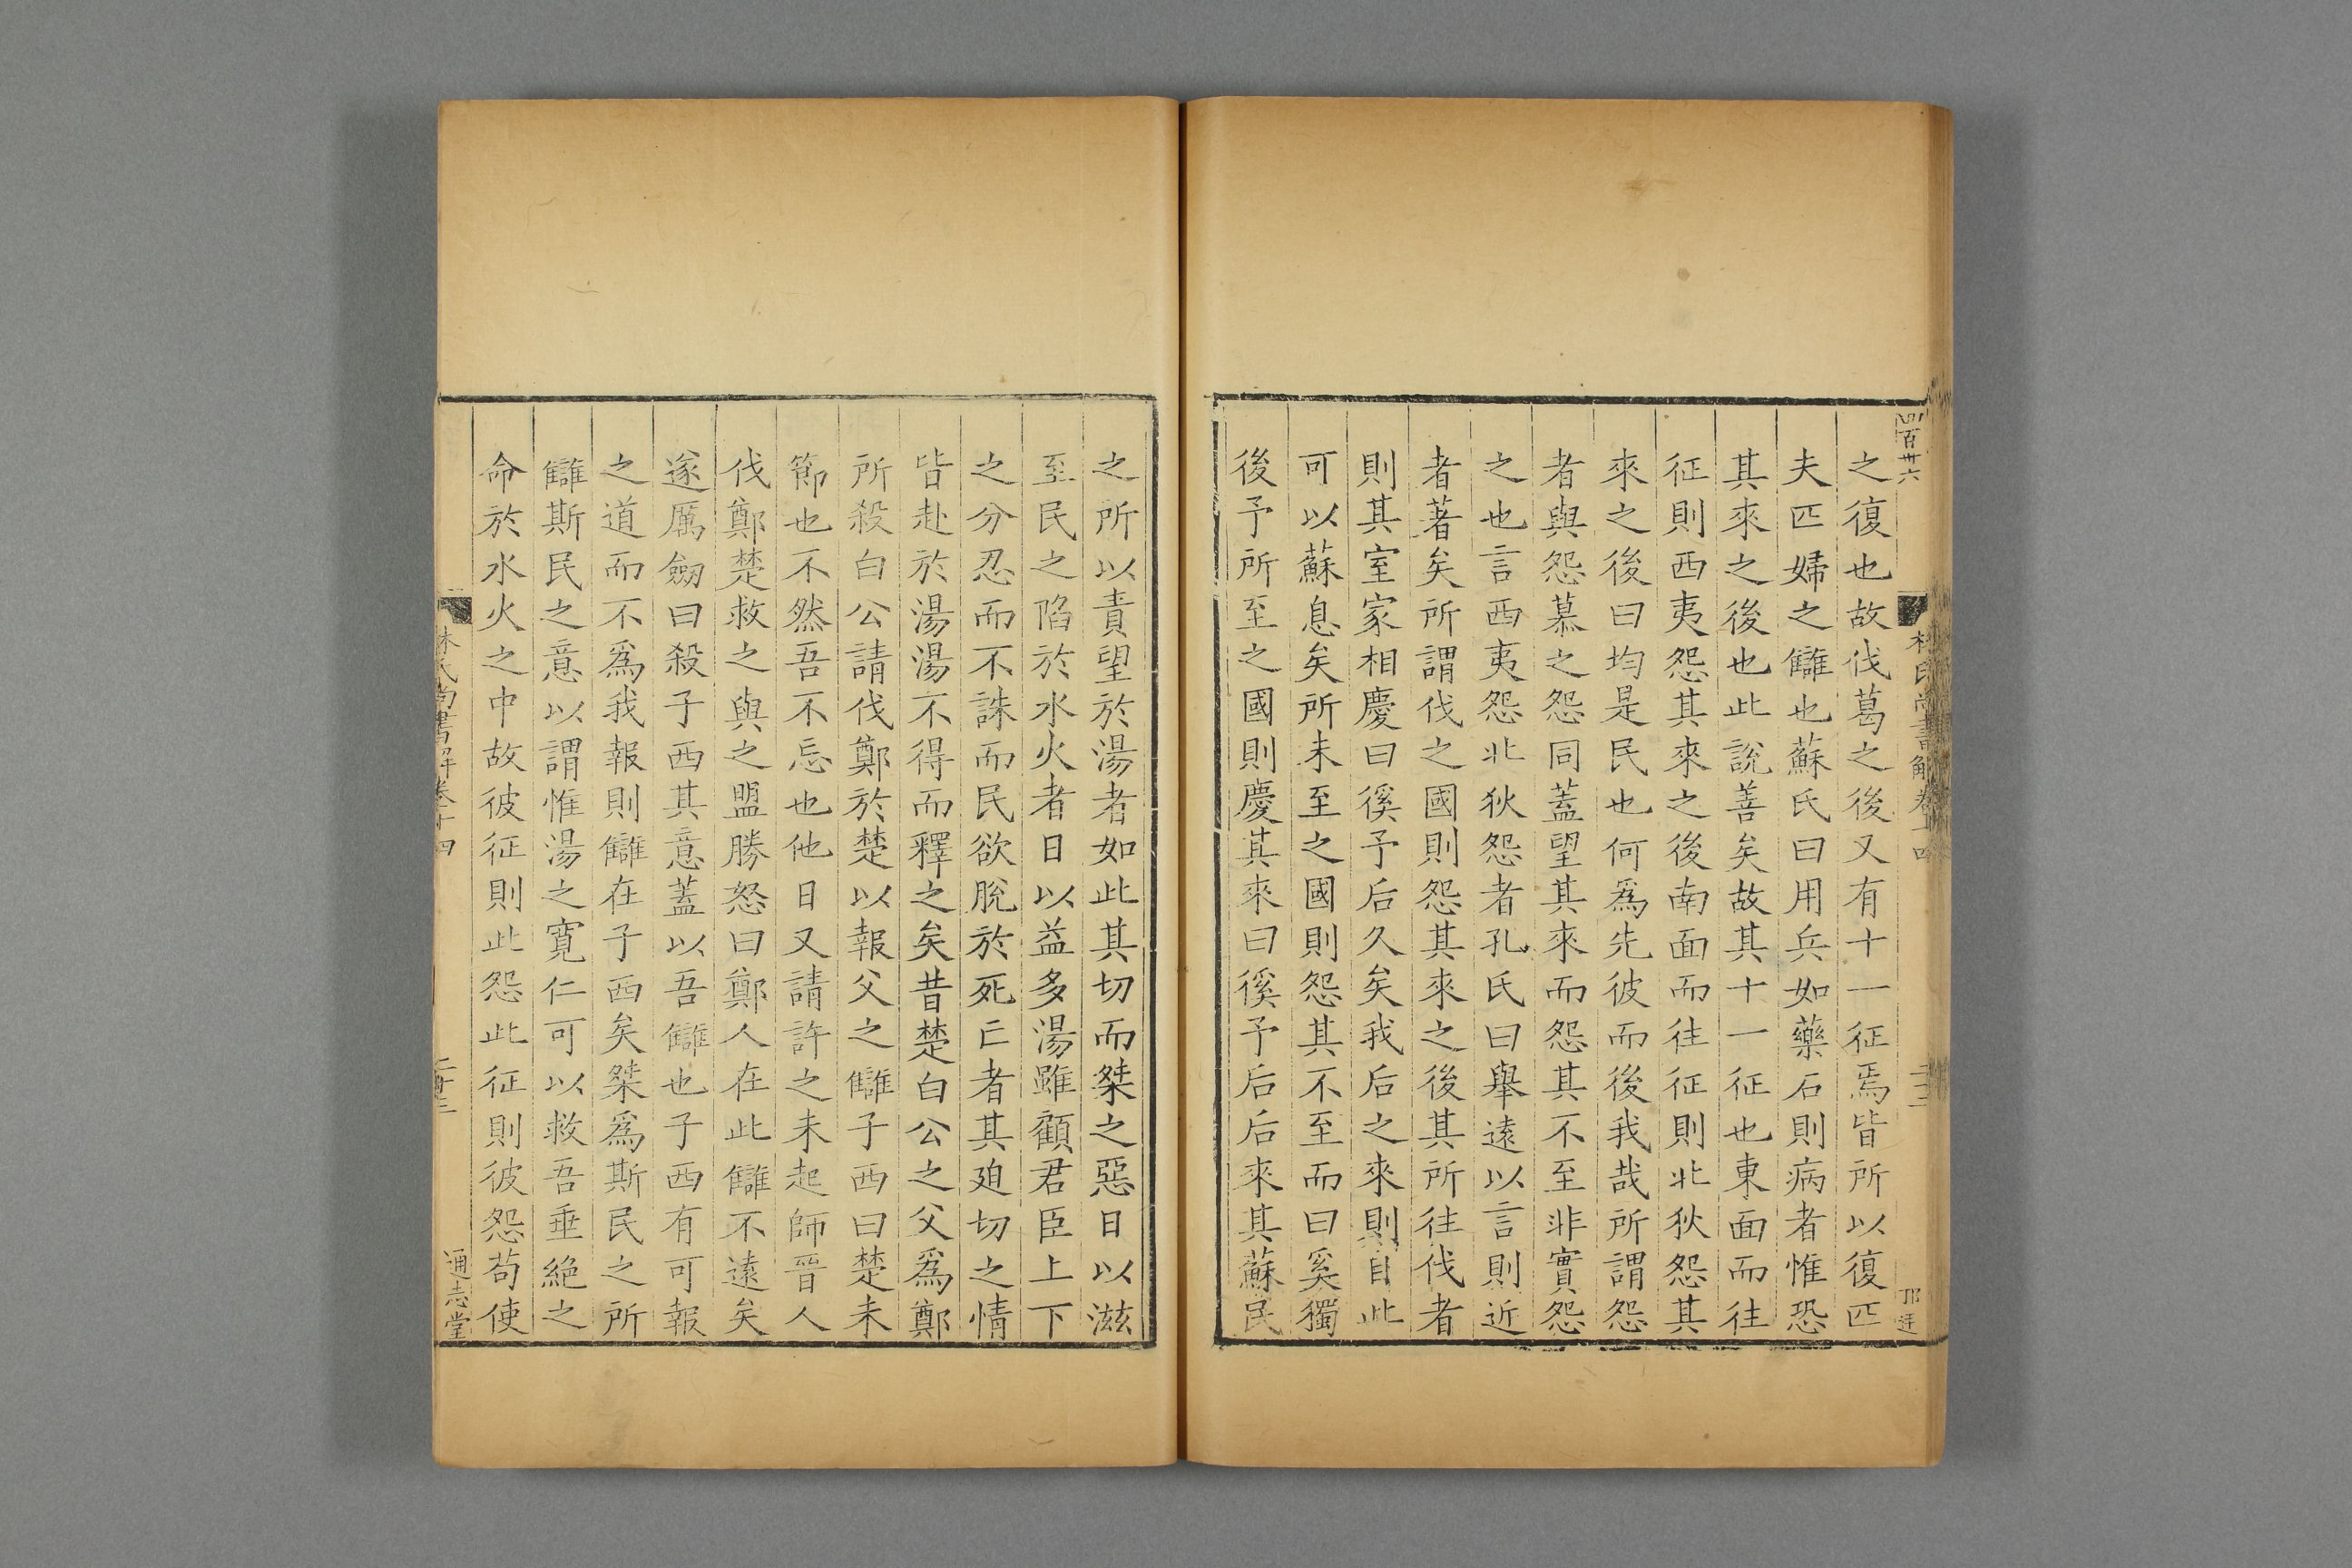 之復也故伐葛之後又有十一征焉皆所以復匹
夫匹婦之讎也蘇氏曰用兵如藥石則病者惟恐
其來之後也此說善矣故其十一征也東面而往
征則西夷怨其來之後南面而往征則北狄怨其
來之後曰均是民也何爲先彼而後我哉所謂怨
者與怨慕之怨同蓋望其來而怨其不至非實怨
之也言西夷怨北狄怨者孔氏曰舉遠以言則近
者著矣所謂伐之國則怨其來之後其所往伐者
則其室家相慶曰徯予后久矣我后之來則自此
可以蘇息矣所未至之國則怨其不至而曰奚獨
後予所至之國則慶其來曰徯予后后來其蘇民
之所以責望於湯者如此其切而桀之惡日以滋
至民之陷於水火者日以益多湯雖顧君臣上下
之分忍而不誅而民欲脫於死亡者其廹切之情
皆赴於湯湯不得而釋之矣昔楚白公之父爲鄭
所殺白公請伐鄭於楚以報父之讎子西曰楚未
節也不然吾不忘也他日又請許之未起師晉人
伐鄭楚救之與之盟勝怒曰鄭人在此讎不遠矣
遂厲劒曰殺子西其意蓋以吾讎也子西有可報
之道而不爲我報則讎在子西矣桀爲斯民之所
讎斯民之意以謂惟湯之寬仁可以救吾垂絕之
命於水火之中故彼征則此怨此征則彼怨苟使
林氏尚書解卷十四
通志堂